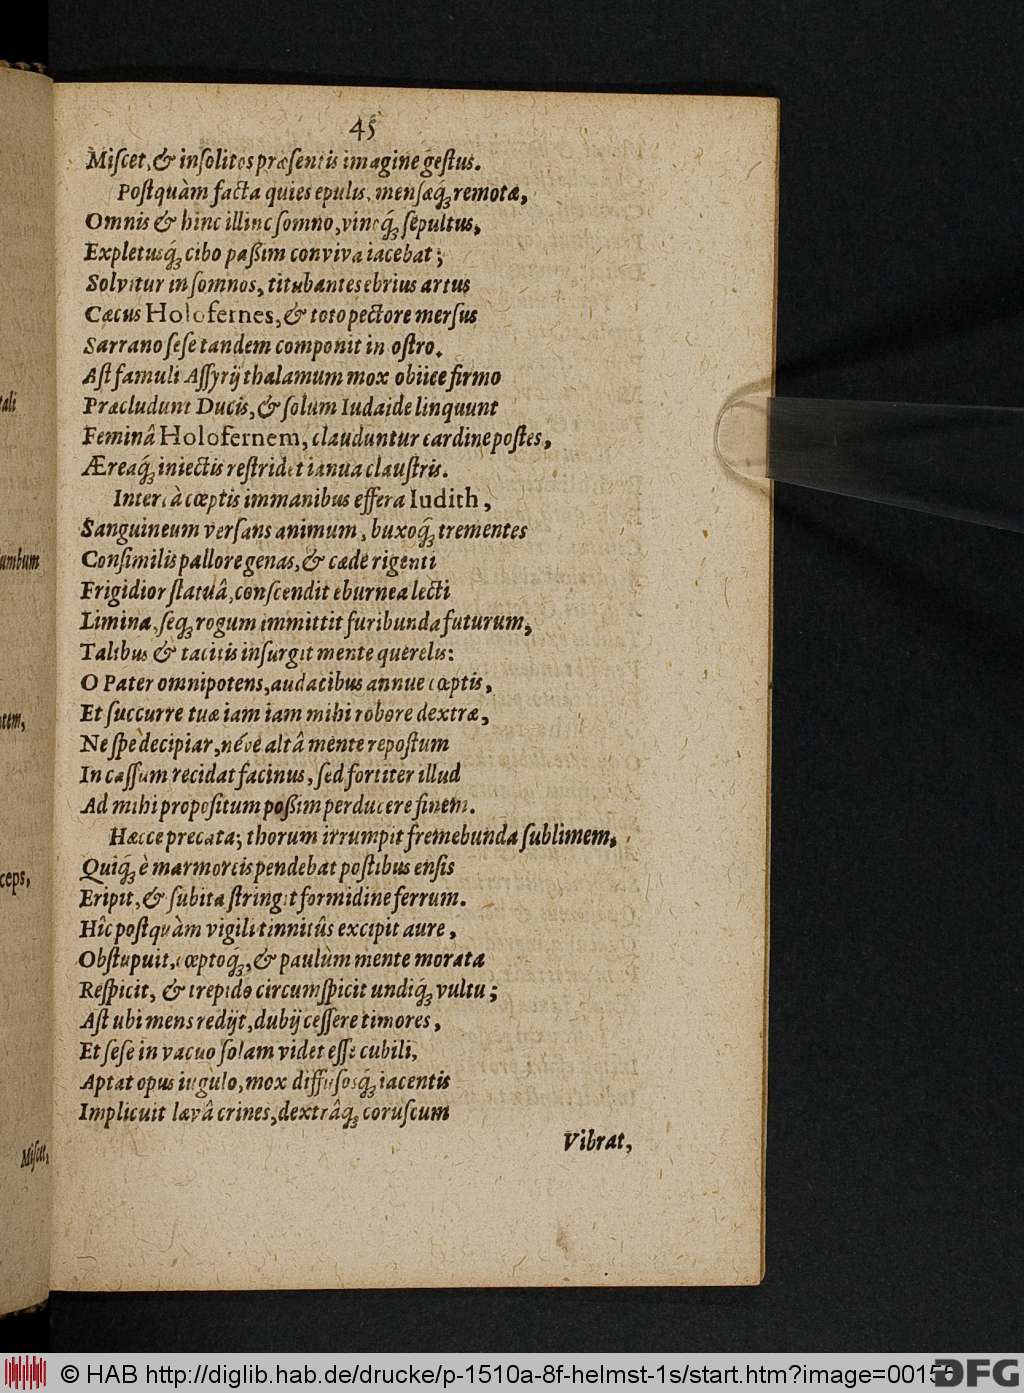 45
Miſcet, & inſolitos præſentis imagine geſtus.
Poſtquàm facta quies epulis, menſæq́; remotæ,
Omnis & hinc illinc ſomno, vinoq́; ſepultus,
Expletusq́; cibo paßim conviva iacebat;
Solvitur in ſomnos, titubantes ebrius artus
Cæcus Holofernes, & toto pectore merſus
Sarrano ſeſe tandem componit in oſtro.
Aſt famuli Aſſyrij thalamum mox obiice firmo
Præcludunt Ducis, & ſolum Iudaide linquunt
Feminâ Holofernem, clauduntur cardine poſtes,
Æreaq́; iniectis reſtridet ianua clauſtris.
Intereà cœptis immanibus effera Iudith,
Sanguineum verſans animum, buxoq́; trementes
Conſimilis pallore genas, & cæde rigenti
Frigidior ſtatuâ, conſcendit eburnea lecti
Limina, ſeq́; rogum immittit furibunda futurum,
Talibus & tacitis inſurgit mente querelis:
O Pater omnipotens, audacibus annue cœptis,
Et ſuccurre tuæ iam iam mihi robore dextræ,
Ne ſpe decipiar, néve altâ mente repoſtum
In caſſum recidat facinus, ſed fortiter illud
Ad mihi propoſitum poßim perducere finem.
Hæcce precata; thorum irrumpit fremebunda ſublimem,
Quiq́; è marmoreis pendebat poſtibus enſis
Eripit, & ſubita ſtringit formidine ferrum.
Hîc poſtquàm vigili tinnitûs excipit aure,
Obſtupuit, cœptoq́;, & paulùm mente morata
Reſpicit, & trepido circumſpicit undiq́; vultu;
Aſt ubi mens redijt, dubij ceſſere timores,
Et ſeſe in vacuo ſolam videt eſſe cubili,
Aptat opus iugulo, mox diffuſosq́; iacentis
Implicuit lævâ crines, dextrâq́; coruſcum
Vibrat,
tali
ambum
ntem,
ceps,
Miſcet,
© HAB http://diglib.hab.de/drucke/p-1510a-8f-helmst-1s/start.htm?image=00155
DFG